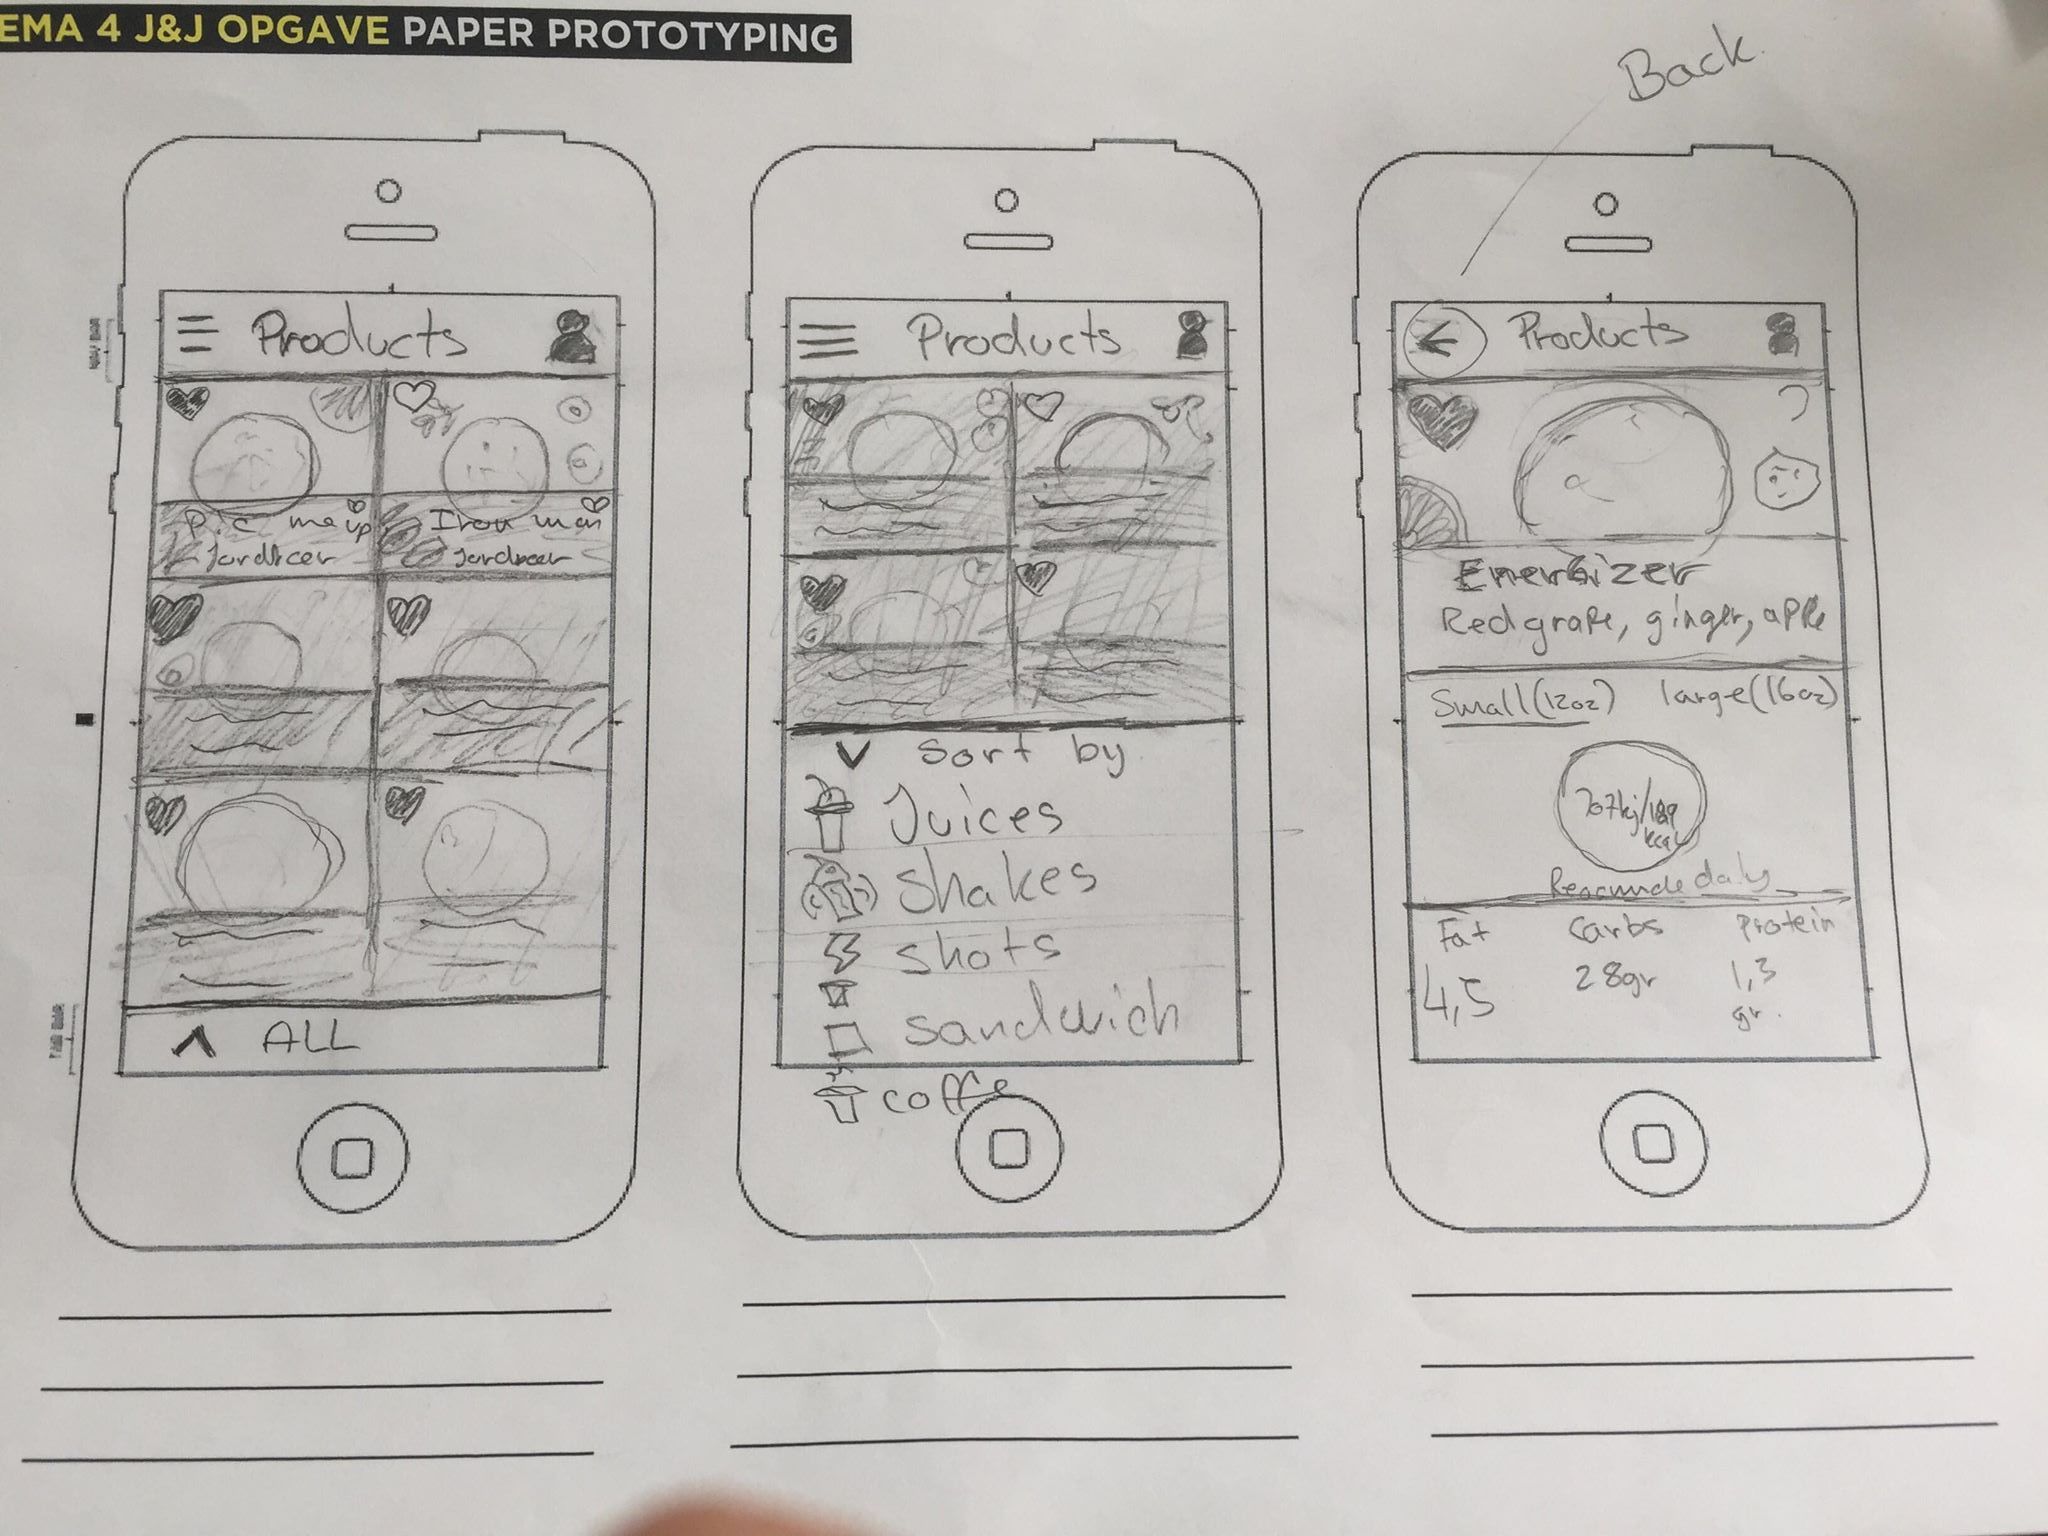 EMA 4 J&J OPGAVE PAPER PROTOTYPING
Back
Products
P.c me up
Iron man
ALL
Products
Sort by
Juices
Shakes
shots
sandwich
coffe
Products
Energizer
Red grape, ginger, apple
Small(12oz) large(16oz)
daily
Fat Carbs Protein
4,5 28gr 1,3
gr.